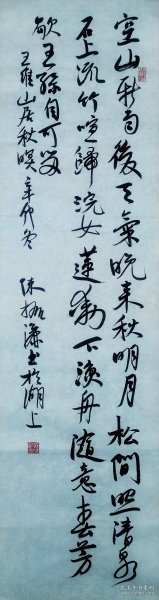 空山新雨後天氣晚来秋明月松間照清泉
石上流竹喧歸浣女蓮動下漁舟隨意春芳
歇王孫自可留
王維山居秋暝辛卯冬 陳振濂书於湖上